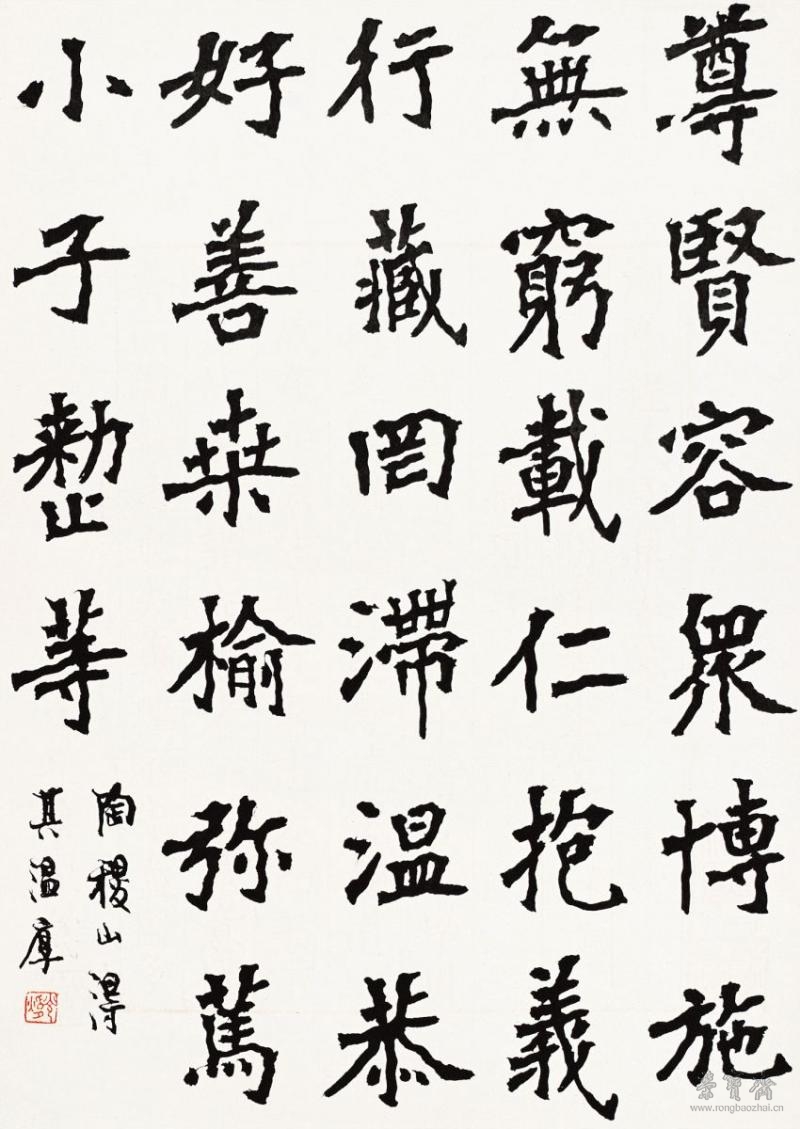 尊賢容眾博施
無窮載仁抱義
行藏罔滯溫恭
好善桒榆弥篤
小子慙䒭
陶稷山得
其温厚
崇寶齋
www.rongbaozhai.cn